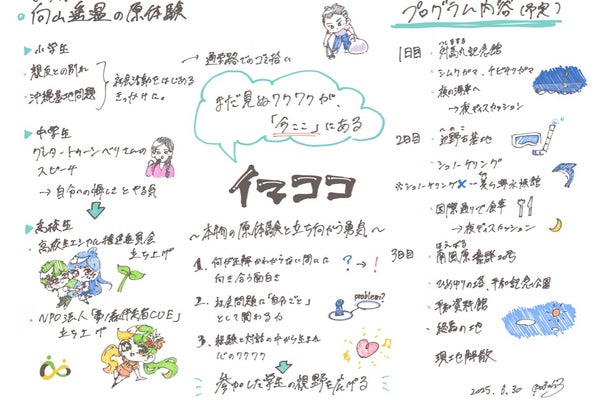 向山遥温の原体験
▶小学生
・親友との別れ
・沖縄基地問題
新聞活動をはじめる
きっかけに。
→ 通学路でのゴミ拾い
▶中学生
グレタ・トゥーンベリさんの
スピーチ
▶高校生
・高校生エシカル推進委員会
立ち上げ
・NPO法人
立ち上げ
まだ見ぬワクワクが、
「今ここ」にある
イマココ
〜本物の原体験と立ち向かう勇気〜
1. 何が正解かわからない問いに
向き合う面白さ
? → !
2. 社会問題に「自分ごと」
として関わる力
problem?
3. 経験と対話の中から生まれ
心のワクワク
参加した学生の視野を広げる
プログラム内容(予定)
1日目
・対馬丸記念館
・シムクガマ、チビチリガマ
・夜の海岸へ
→夜ディスカッション
2日目
へのこ
・辺野古基地
・シュノーケリング
※シュノーケリング✕…美ら海水族館
・国際通りで食事
→夜ディスカッション
3日目
はえばる
・南風原壕20号
・ひめゆりの塔、平和記念公園
・平和資料館
・終焉の地
現地解散
2025.6.30